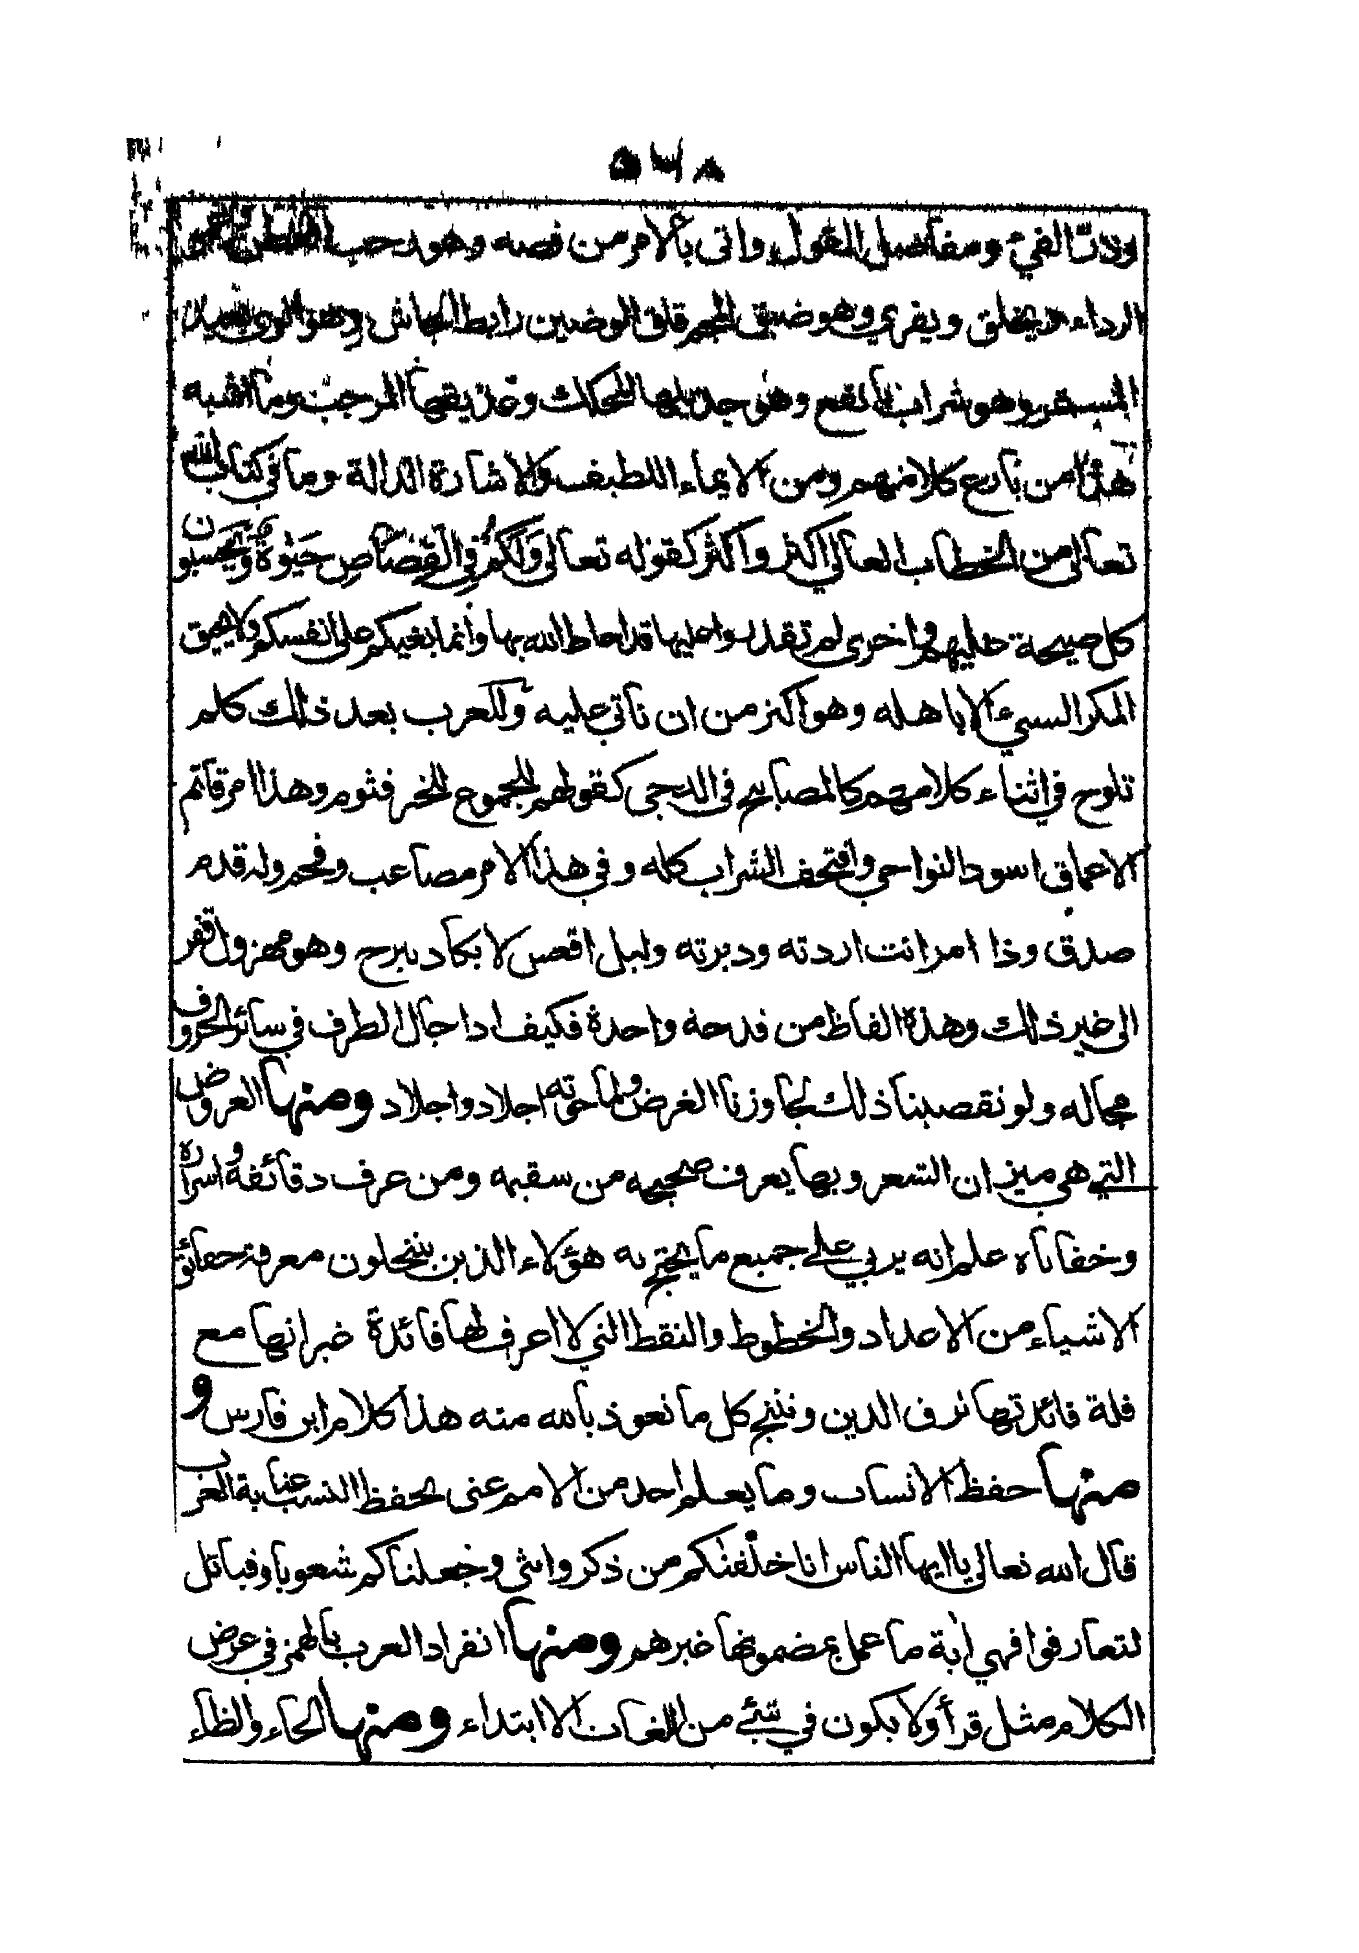 ٥٦٨
وذات الفيء ومفاصل القول واتى بالامر من فصه وهو رحب العطن وغمر
الرداء ويخلق ويفري وهو ضيق المجم قلق الوضين رابط الجاش وهو الوى بعيد
المستمر وهو شراب بانقع وهو جذيلها المحكك وعذيقها المرجب وما اشبه
هذا من بارع كلامهم ومن الايماء اللطيف والاشارة الدالة وما في كتاب الله
تعالى من الخطاب العالي اكثر واكثر كقوله تعالى وَلَكُمْ فِي الْقِصَاصِ حَيٰوةٌ وَيَحْسَبُونَ
كل صيحة عليهم واخرى لم تقدروا عليها قد احاط الله بها وانما بغيكم على انفسكم ولا يحيق
المكر السيء الا باهله وهو اكثر من ان ناتي عليه وللعرب بعد ذلك كلم
تلوح في اثناء كلامهم كالمصابيح في الدجى كقولهم للجموع للخير قثوم وهذا امر قاتم
الاعماق اسود النواحي واقتحف الشراب كله وفي هذا الامر مصاعب وقحم وله قدم
صدق وذا امر انت اردته ودبرته وليل اقعس لا يكاد يبرح وهو منهز واقفر
الى غير ذلك وهذه الفاظ من قدحة واحدة فكيف اذا جال الطرف في سائر الحروف
مجاله ولو تقصينا ذلك لجاوزنا الغرض ولما حوته اجلاد واجلاد ومنها العروض
التي هي ميزان الشعر وبها يعرف صحيحه من سقيمه ومن عرف دقائقه واسراره
وخفاياه علم انه يربي على جميع ما يحتج به هؤلاء الذين ينتحلون معرفة حقائق
الاشياء من الاعداد والخطوط والنقط التي لا اعرف لها فائدة غير انها مع
قلة فائدتها ترف الدين وتنتج كل ما نعوذ بالله منه هذا كلام ابن فارس و
منها حفظ الانساب وما يعلم احد من الامم عني بحفظ النسب عناية العرب
قال الله تعالى يا ايها الناس انا خلقنكم من ذكر وانثى وجعلناكم شعوبا وقبائل
لتعارفوا فهي اية ما عمل بمضمونها غيرهم ومنها انفراد العرب بالهمز في عرض
الكلام مثل قرأ ولا يكون في شئ من اللغات الا ابتداء ومنها الحاء والظاء